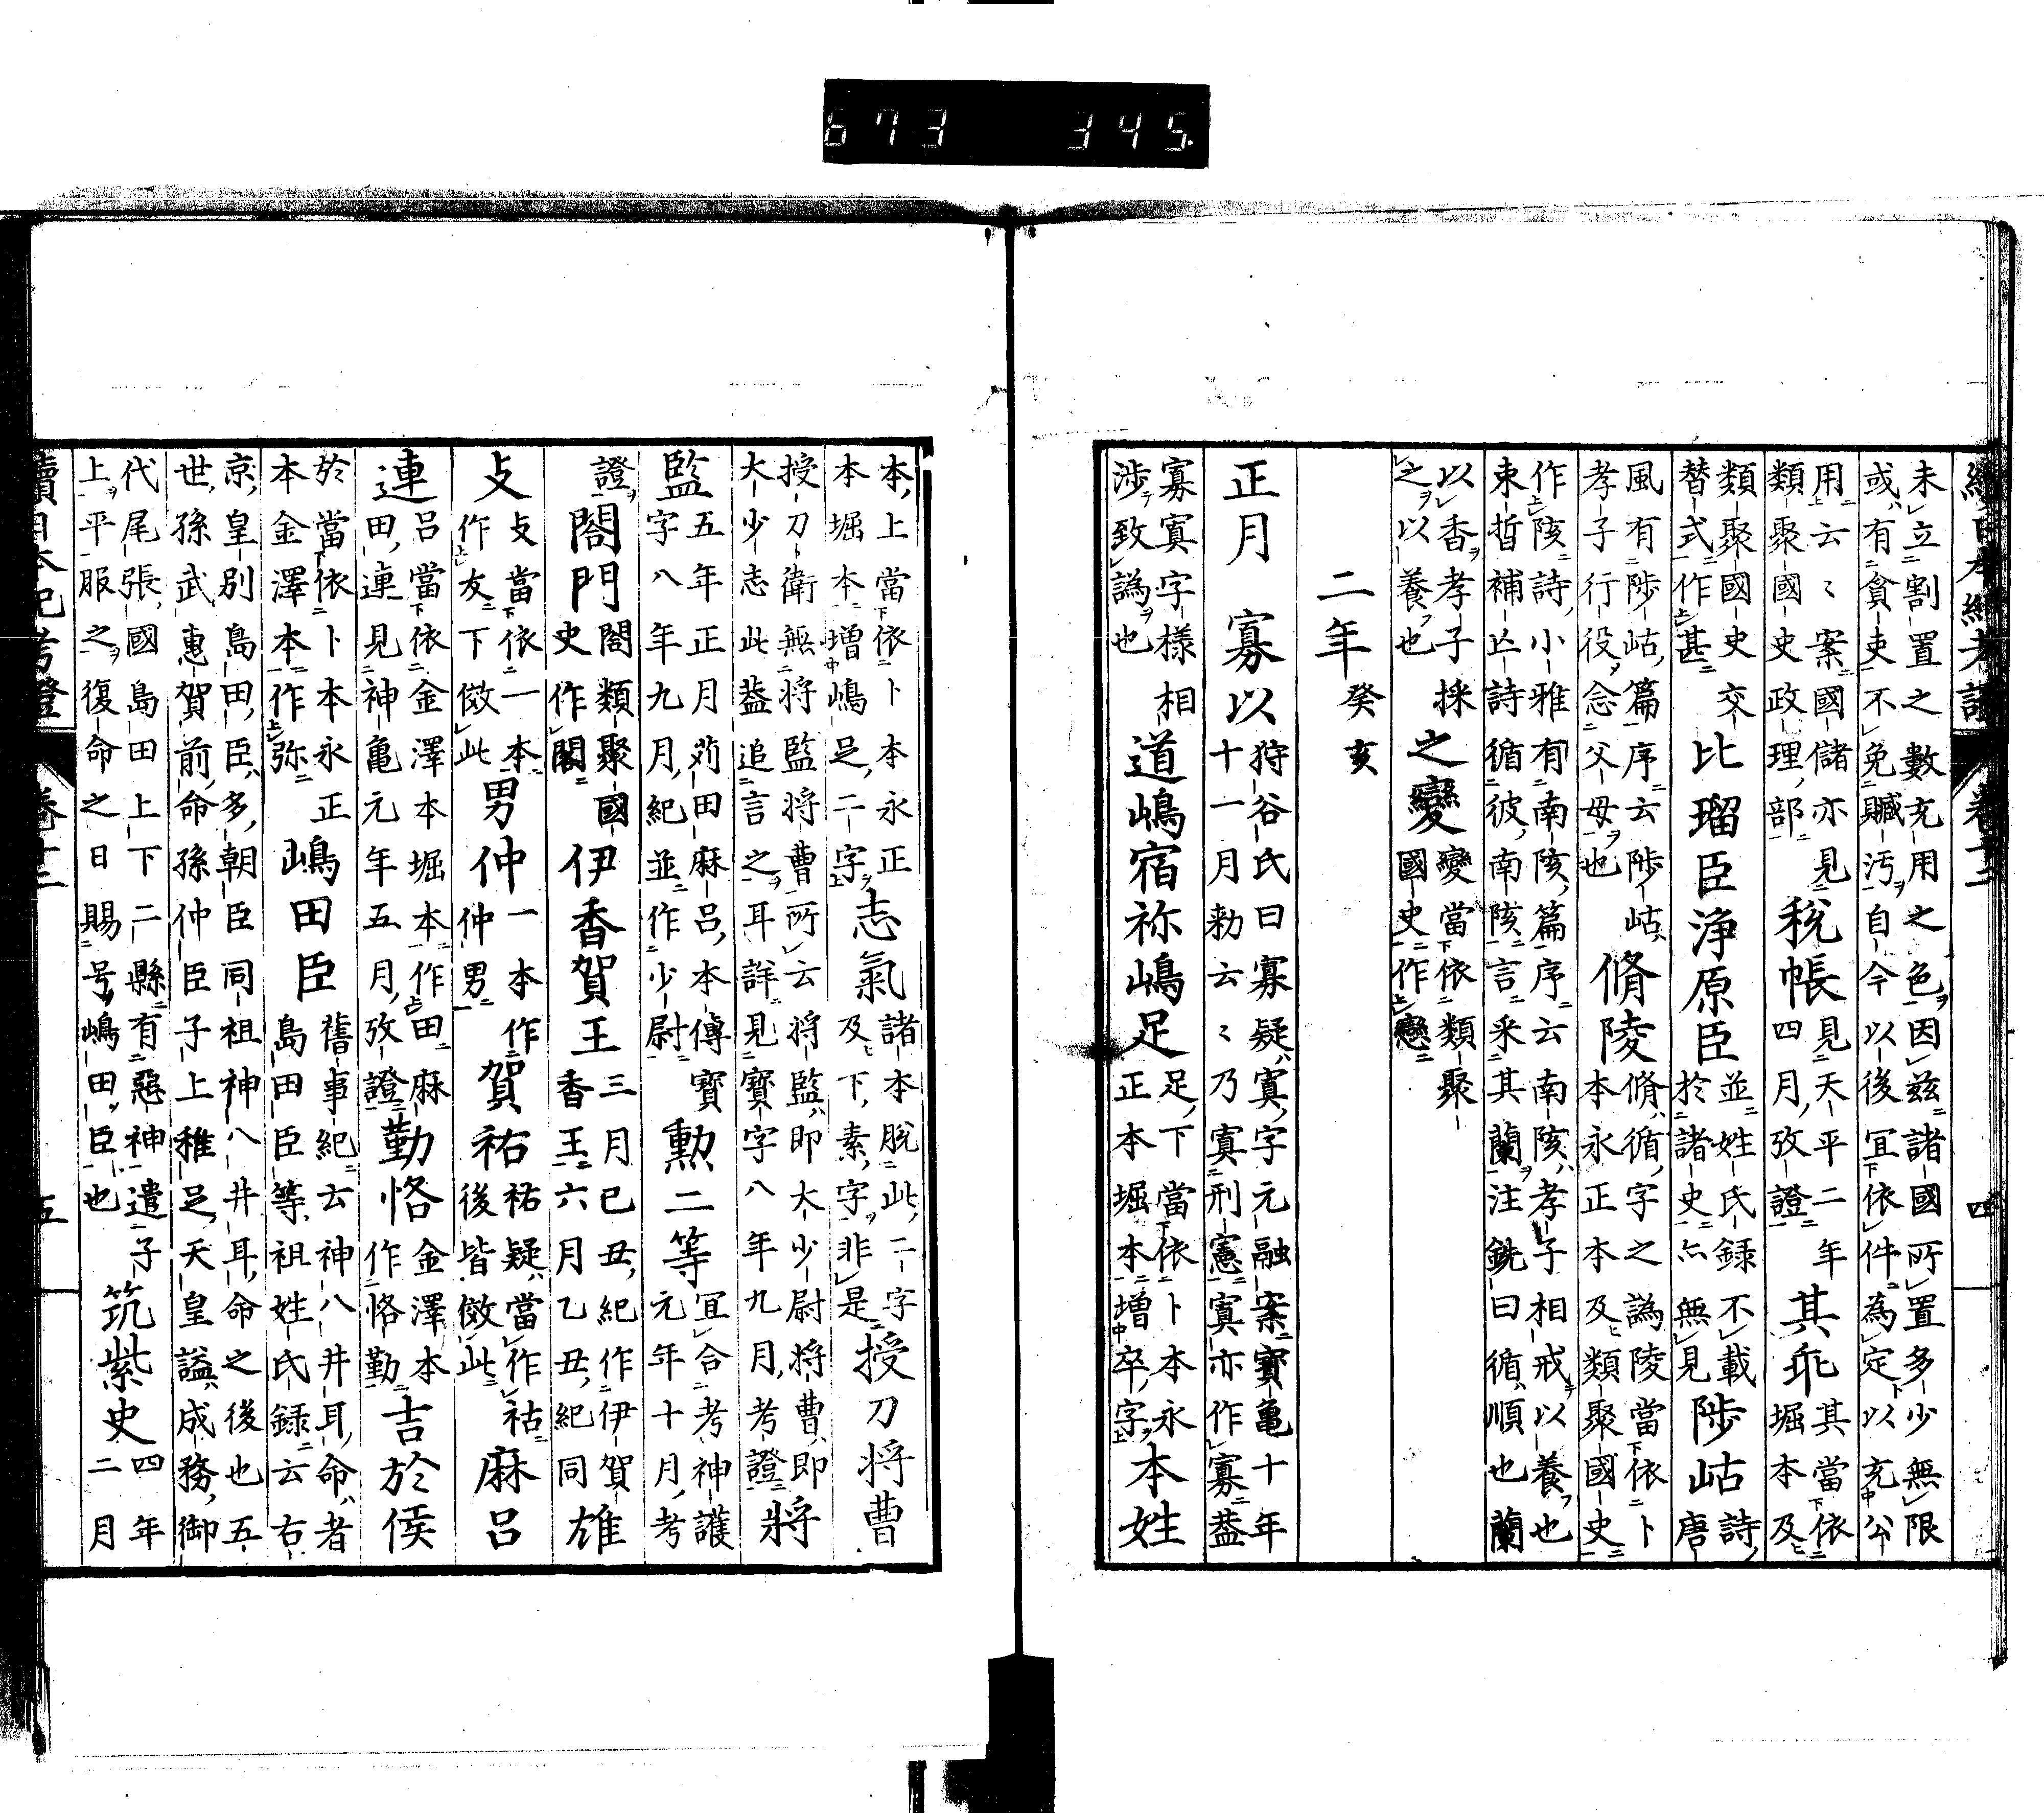 673 345.
續日本紀考證 卷十二 四
未立割置之數充用之色因茲諸國所置多少無限
或有貪吏不免贓汚自今以後宜依件為定以充公
用云〻案國儲亦見 稅帳 見天平二年 其乖 其當依
類聚國史政理部 四月攷證 堀本及
類聚國史交 比瑠臣淨原臣 並姓氏録不載 陟岵 詩
替式作甚 於諸史亦無見 唐
風有陟岵篇序云陟岵 脩陵 脩循字之譌陵當依卜
孝子行役念父母也 本永正本及類聚國史
作陔詩小雅有南陔篇序云南陔孝子相戒以養也
束晳補亡詩循彼南陔言采其蘭注銑曰循順也蘭
以香孝子採 之變 變當依類聚
之以養也 國史作戀
二年 癸亥
正月 寡以 狩谷氏曰寡疑寘字元融案寶亀十年
十一月勅云〻乃寘刑憲寘亦作寡蓋
寡寘字様相 道嶋宿祢嶋足 足下當依卜本永 本姓
涉致譌也 正本堀本增卒字
本上當依卜本永正 志氣 諸本脫此二字 授刀将曹
本堀本增嶋足二字 及下素字非是
授刀衛無将監将曹所云将監即大少尉将曹即 将
大少志此蓋追言之耳詳見寶字八年九月考證
監 五年正月苅田麻呂本傳寶 勲二等 宜合考神護
字八年九月紀並作少尉 元年十月考
證 閤門 閤類聚國 伊香賀王 三月己丑紀作伊賀 雄
史作閣 香王六月乙丑紀同
攴 攴當依一本 男仲 一本作 賀祐 祐疑當作祜 麻呂
作友下傚此 仲男 後皆傚此
連 呂當依金澤本堀本作田麻 勤恪 金澤本 吉於侯
田連見神亀元年五月攷證 作恪勤
於當依卜本永正 嶋田臣 舊事紀云神八井耳命者
本金澤本作弥 島田臣等祖姓氏録云右
京皇別島田臣多朝臣同祖神八井耳命之後也五
世孫武惠賀前命孫仲臣子上稚足天皇謚成務御
代尾張國島田上下二縣有惡神遣子 筑紫史 四年
上平服之復命之日賜号嶋田臣也 二月
續日本紀考證 卷十二 五